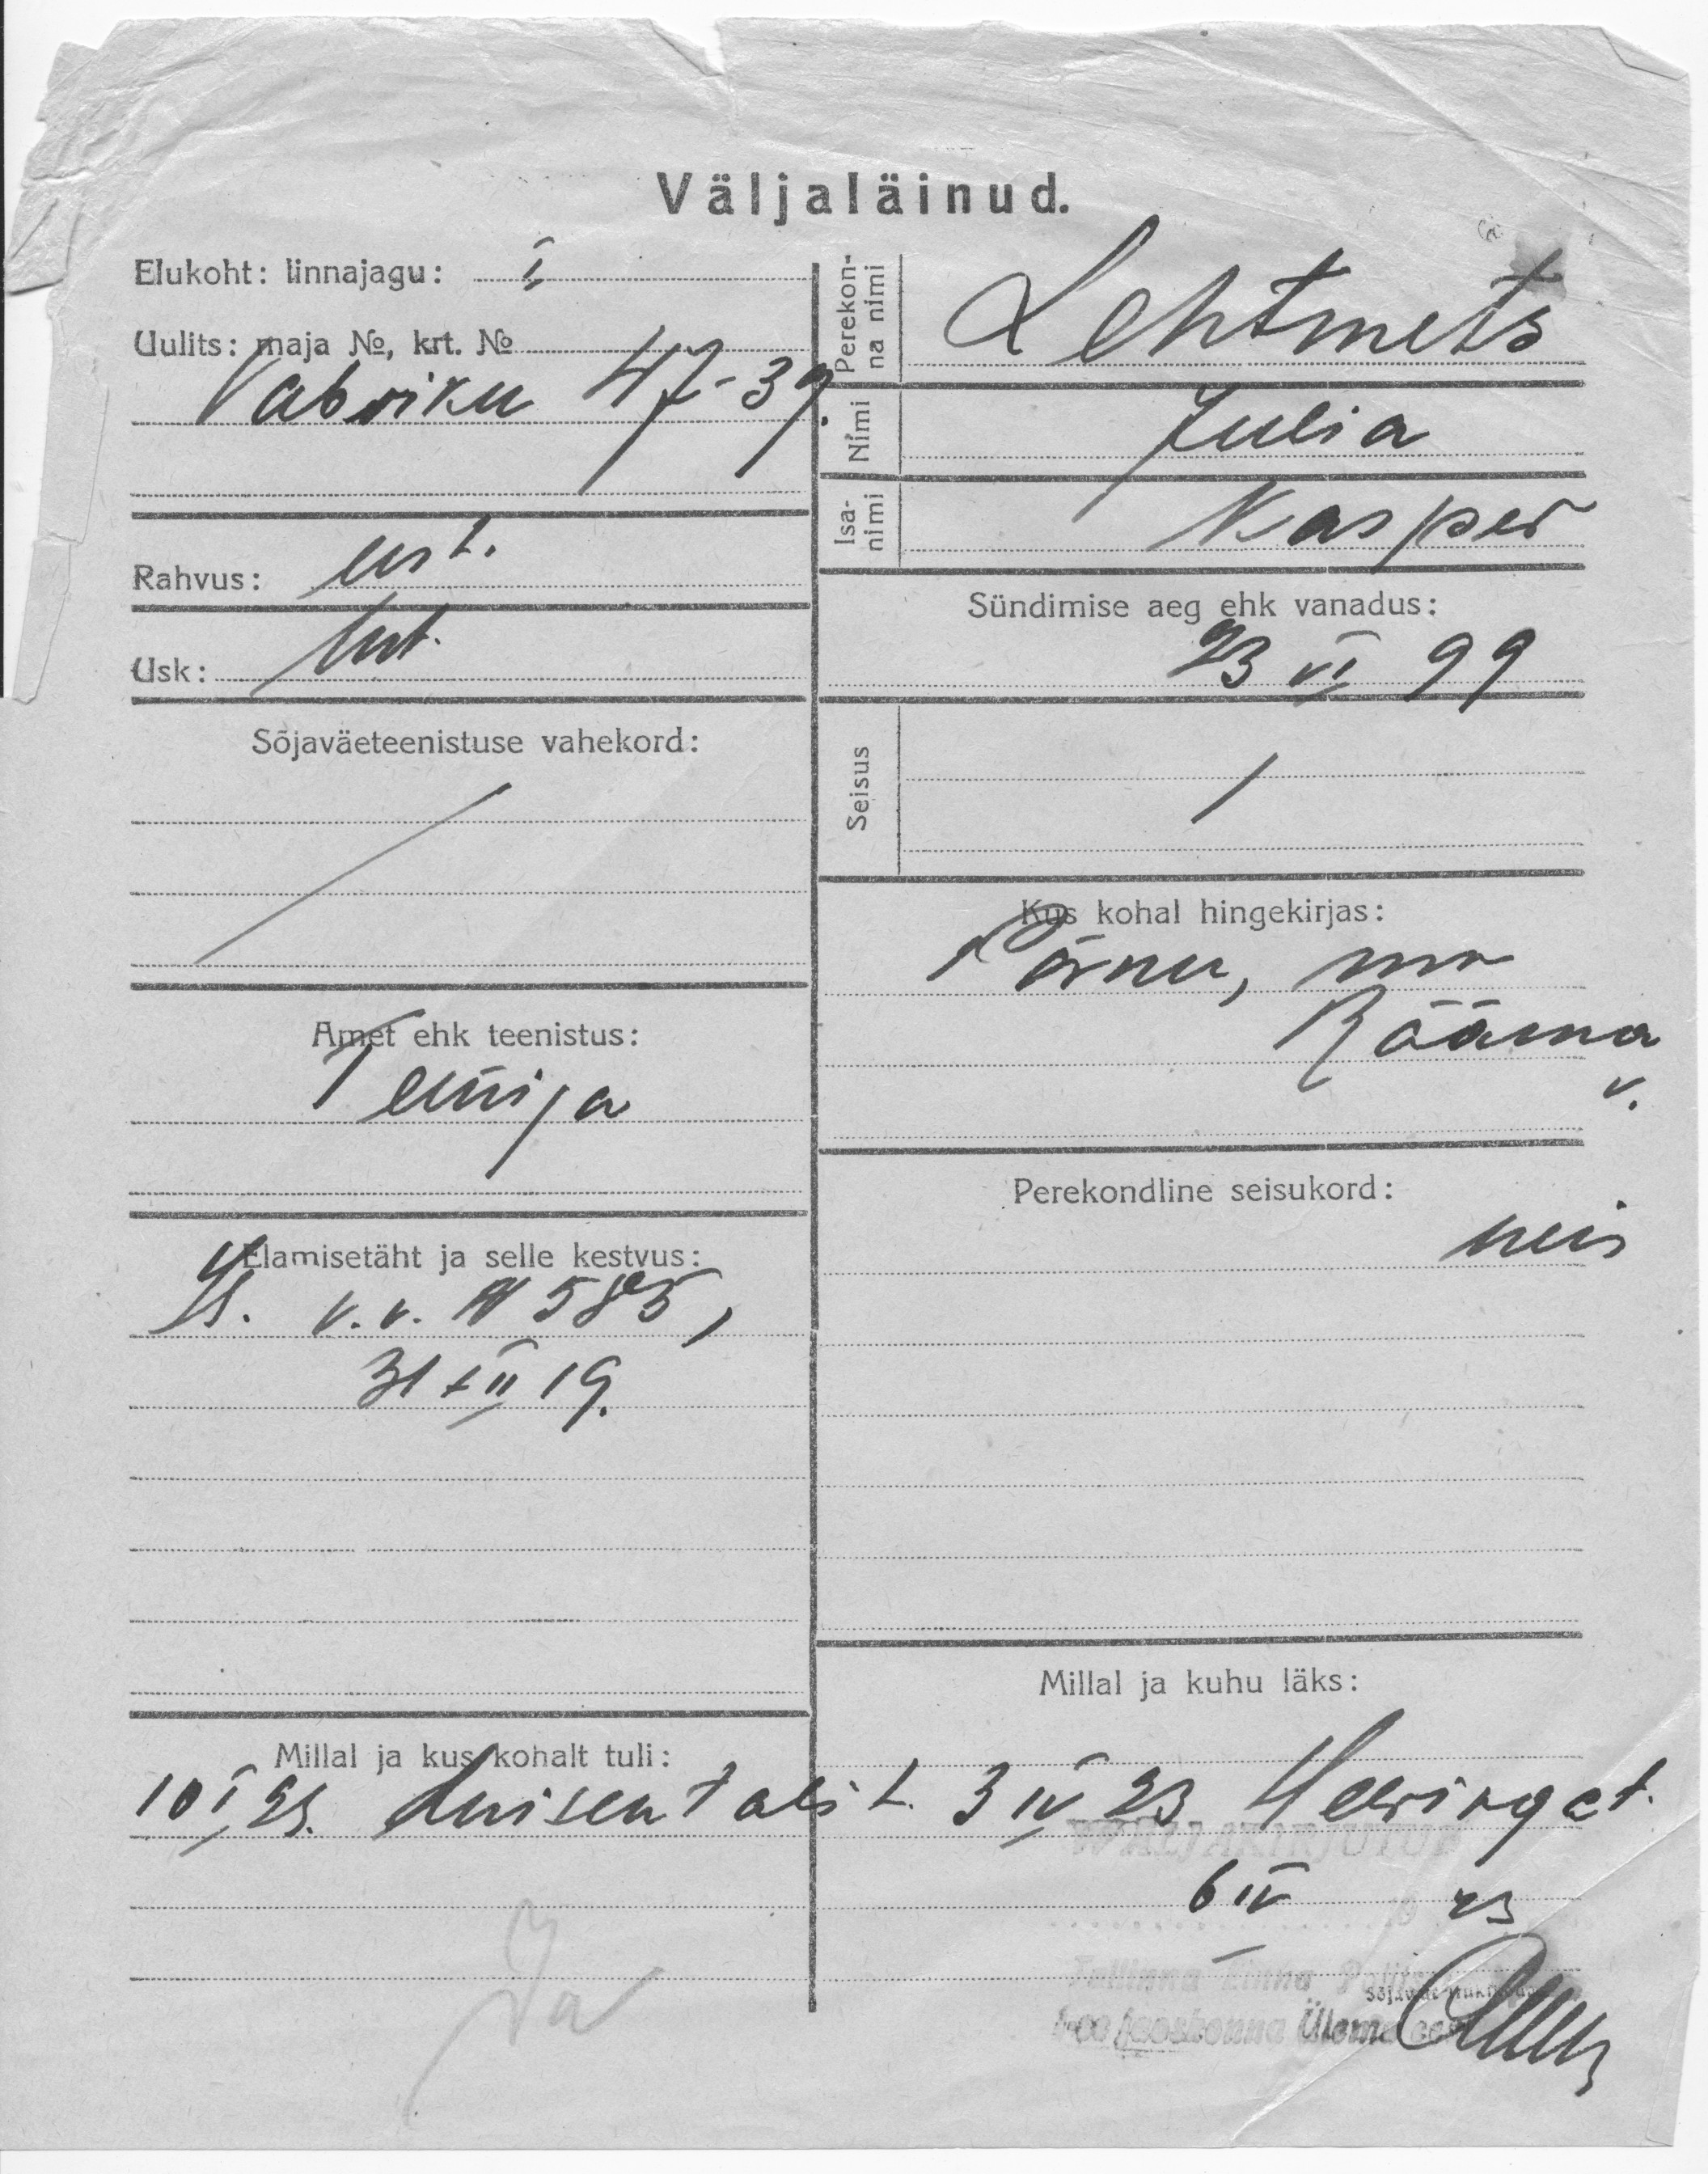 Väljaläinud.
Elukoht: linnajagu: I
Uulits: maja №, krt. №
Vabriku 47-39.
Rahvus: est.
Usk: lut.
Sõjaväeteenistuse vahekord:
/
Amet ehk teenistus:
Teenija
Elamisetäht ja selle kestvus:
v.v. № 585,
31 XII 19.
Millal ja kus kohalt tuli:
10 I 23. Luisentalist.
Ja
Perekon-
na nimi
Lehtmets
Nimi Julia
Isa-
nimi
Kasper
Sündimise aeg ehk vanadus:
23 VI 99
Seisus /
Kus kohal hingekirjas:
Pärnu, m
Rääma
v.
Perekondline seisukord:
neis
Millal ja kuhu läks:
3 IV 23
WÄLJAKIRJUTUD
6 IV 23
Tallinna Linna
jaoskonna Ülema